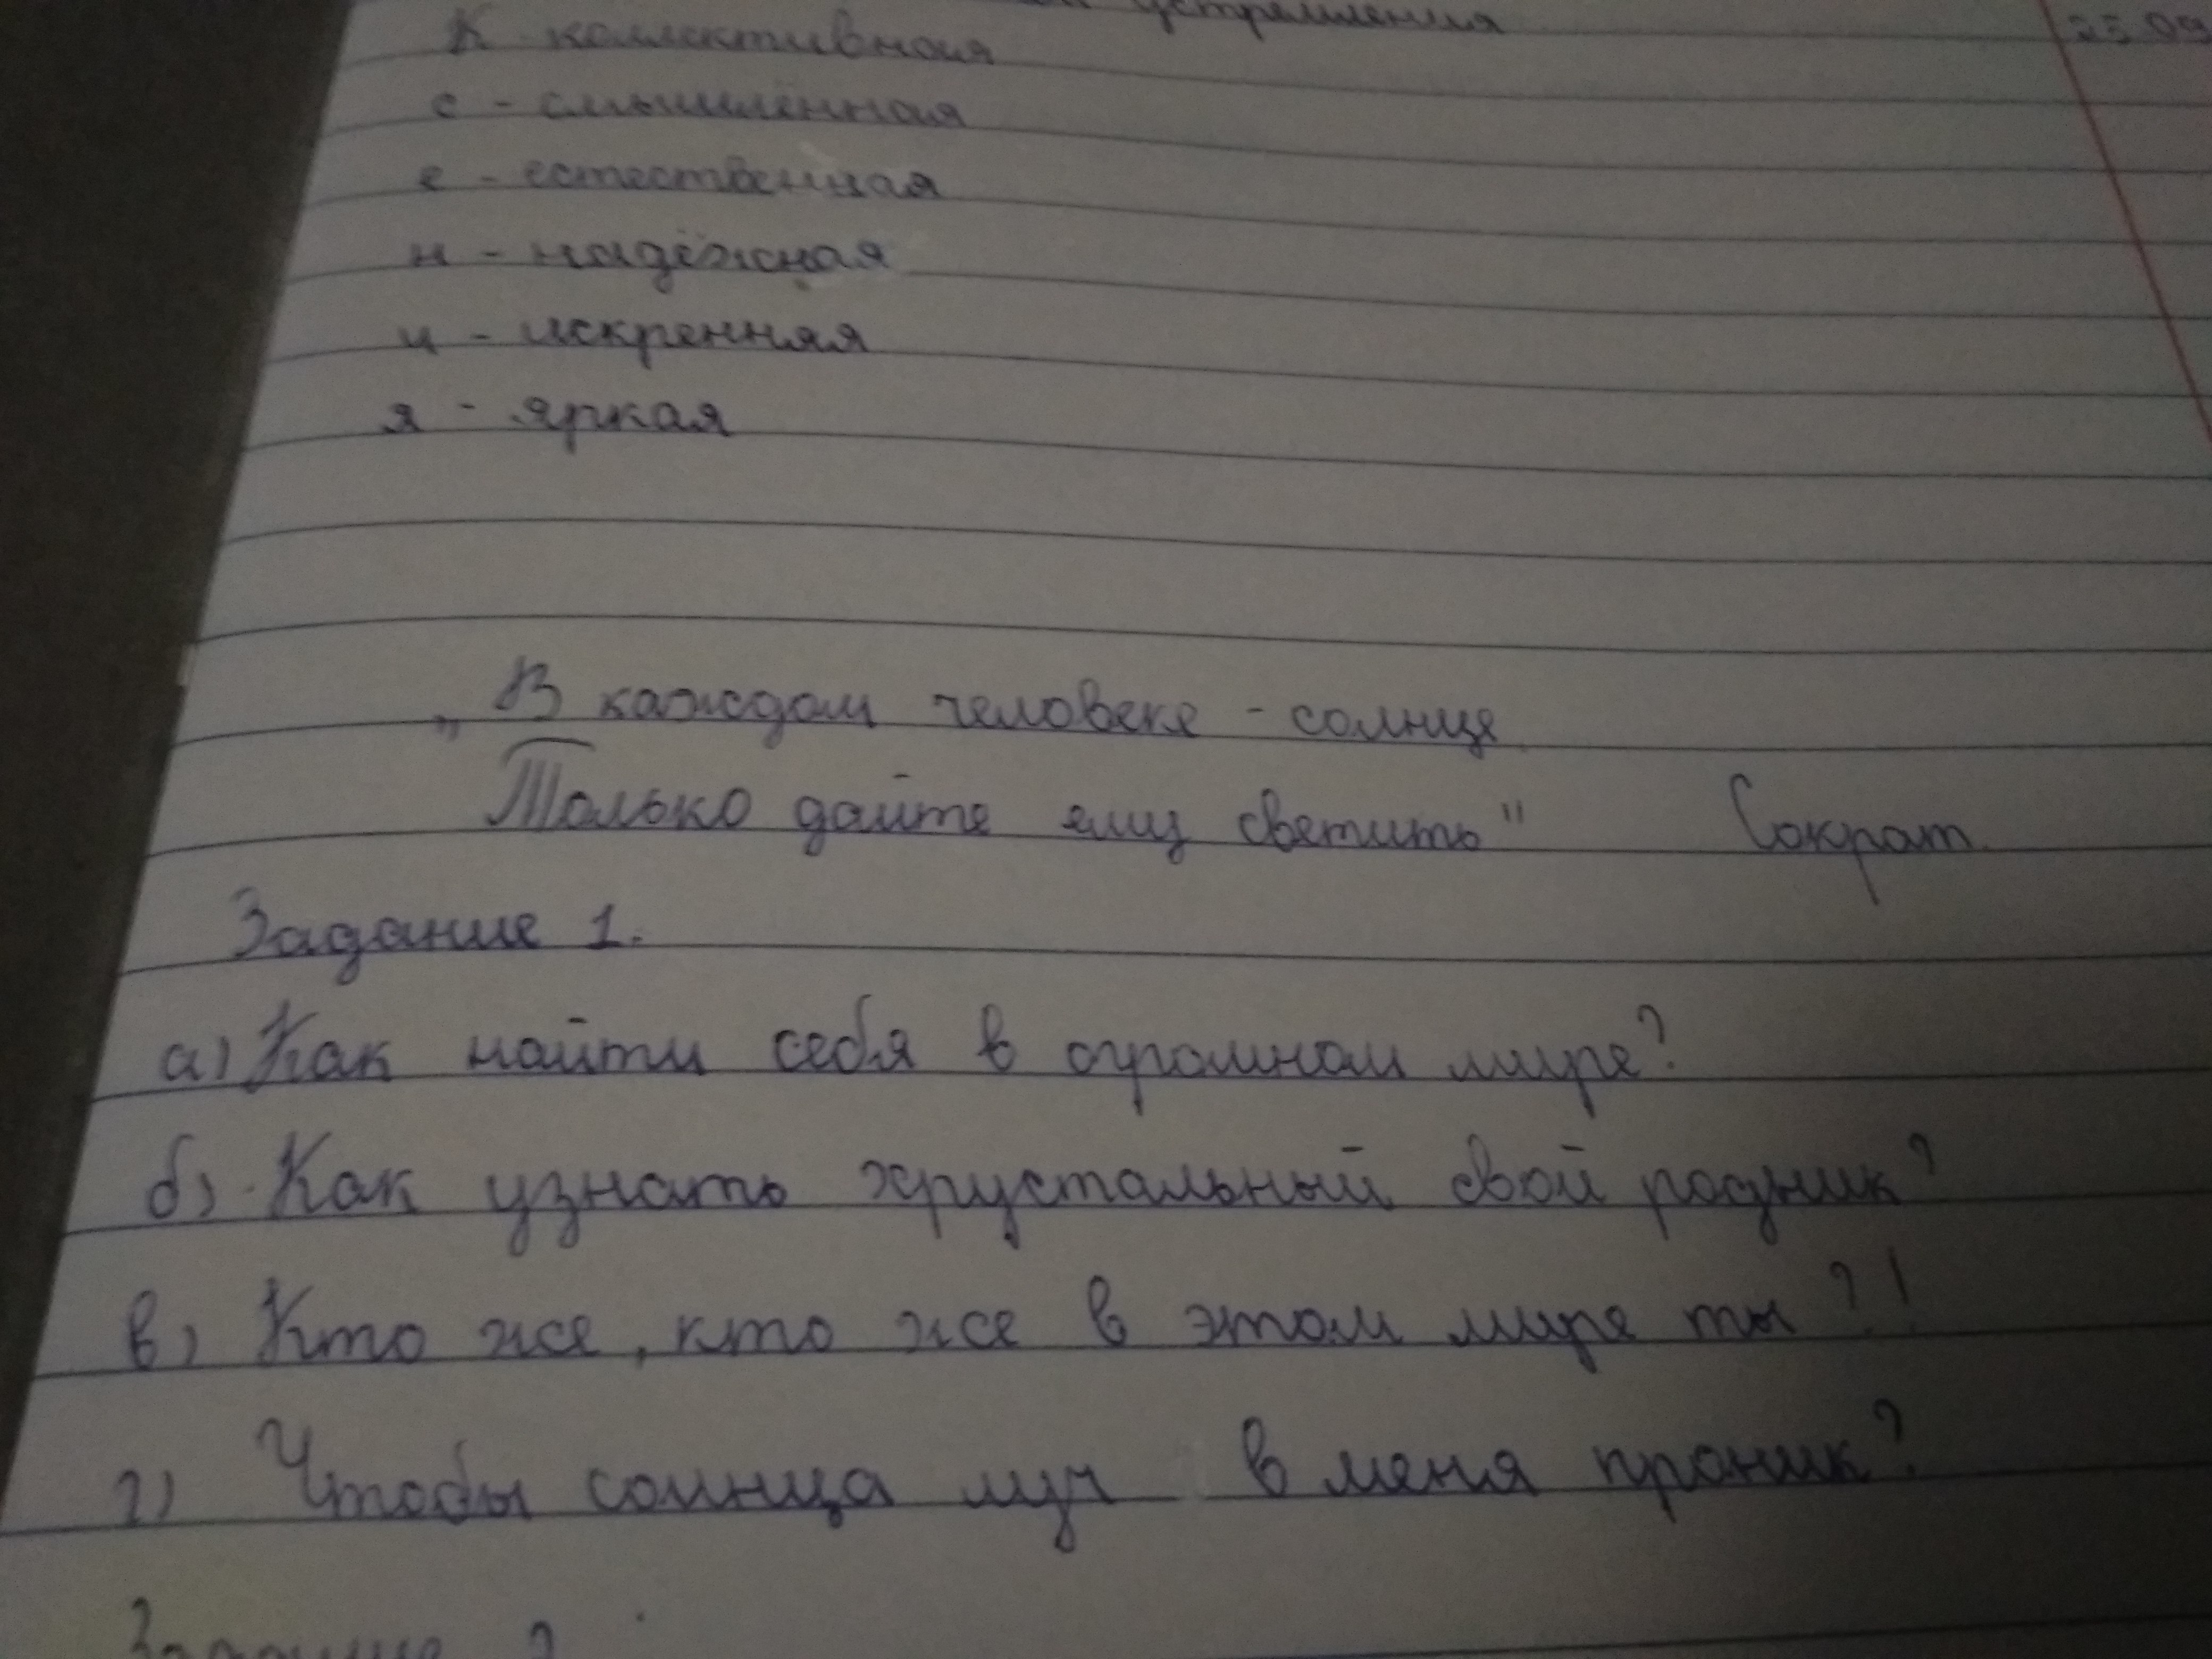 устремления 25.09
К - коллективная
с - смышлённая
е - естественная
н - надёжная
и - искренняя
я - яркая
„В каждом человеке - солнце
Только дайте ему светить" Сократ
Задание 1.
а) Как найти себя в огромном мире?
б) Как узнать хрустальный свой родник?
в) Кто же, кто же в этом мире ты?!
г) Чтобы солнца луч в меня проник?
Задание 2